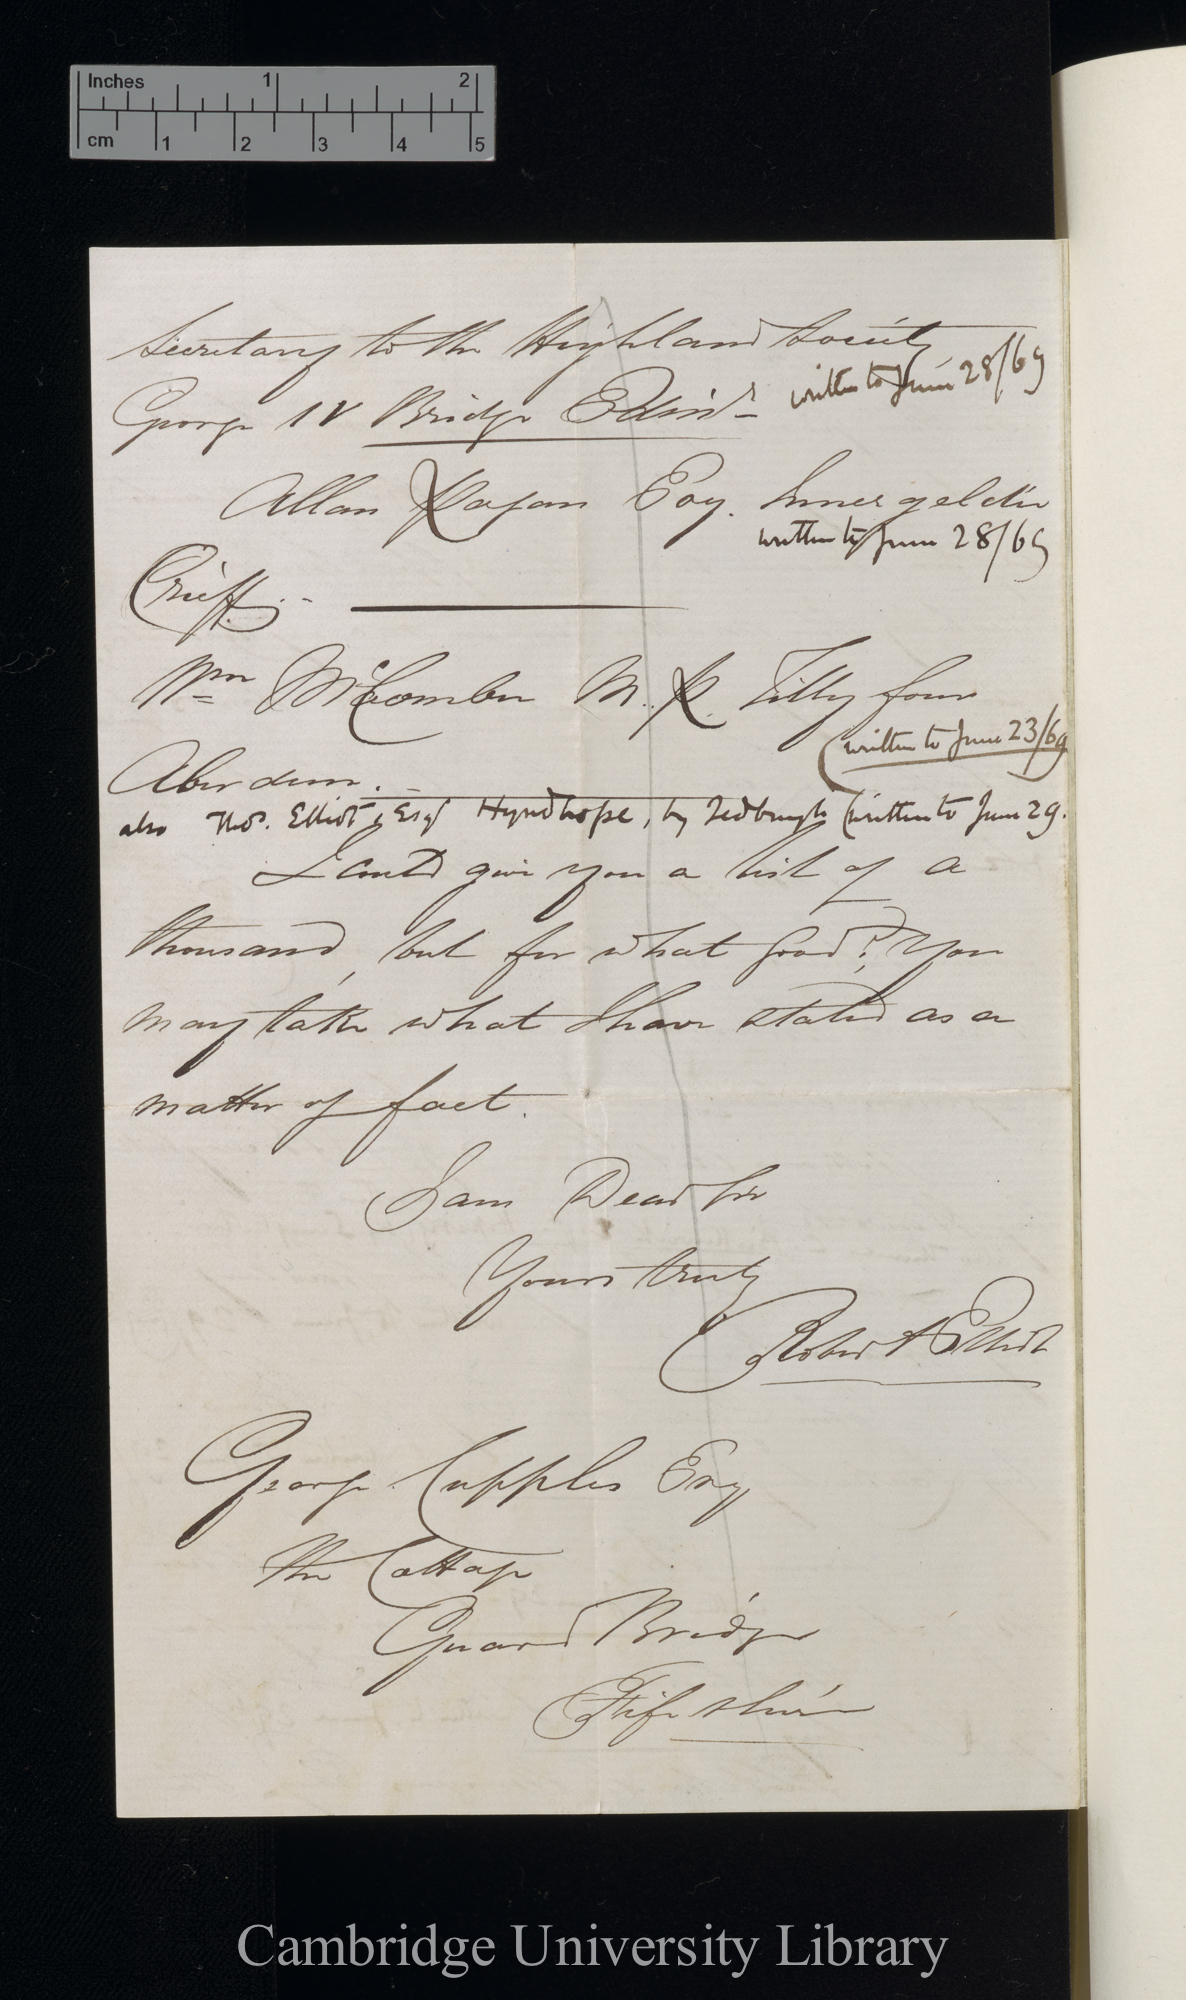 Inches 1 2
cm 1 2 3 4 5
Secretary to the Highland Society
George IV Bridge Edinr written to June 28/69
Allan Pagan Esq. Innergeldie
written to June 28/69
Crieff. -
Wm McCombie M.P. Tilly four
(written to June 23/69
Aberdeen. -
also Thos. Elliot, Esqr Hyndhope, by Jedburgh (written to June 29.
I could give you a list of a
thousand, but for what good? You
may take what I have stated as a
matter of fact.
I am Dear Sir
Yours truly
Robert Elliot
George Cupples Esq
The Cottage
Guard Bridge
Fife shire
Cambridge University Library